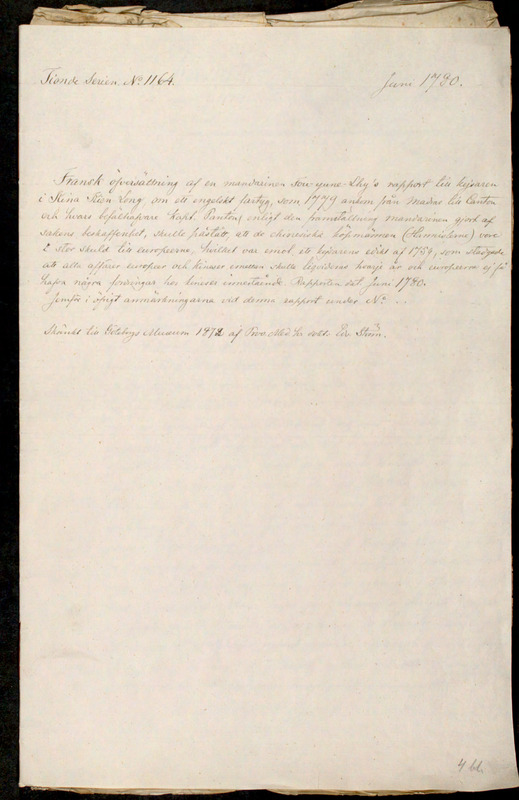 Tionde Serien. No 1164.
Juni 1780.
Fransk öfversättning af en mandarinen Fou-yune-Lhy's rapport till kejsaren
i Kina Kien Long om ett engelskt fartyg, som 1779 ankom från Madras till Canton
och hvars befälhafvare Kapt. Panton, enligt den framställning mandarinen gjort af
sakens beskaffenhet, skulle påstått, att de chinesiska köpmännen (Hannisterne) voro
i stor skuld till européerne, hvilket var emot ett kejsarens edikt af 1754, som stadgade
att alla affärer européer och kineser emellan skulle liquideras hvarje år och européerna ej få
hafva några fordringar hos kineser innestående. Rapporten dat. Juni 1780.
Jemför i öfrigt anmärkningarne vid denna rapport under No ...
Skänkt till Göteborgs Museum 1872 af Prov. Med. Dr Ström.
4 bl.